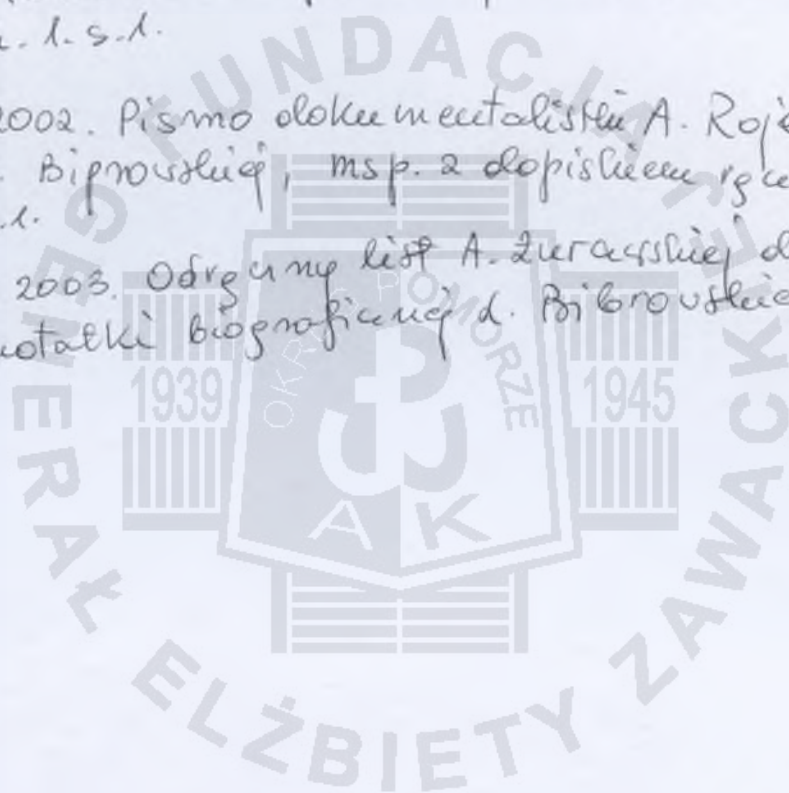 k. 1. s. 1.
2002. Pismo dokumentalistki A. Roje
Bibrowskiej, msp. z dopiskiem ręc
1.
2003. Odręczny list A. Żurawskiej d
notatki biograficznej d. Bibrowskie
FUNDACJA GENERAŁ ELŻBIETY ZAWACKIEJ
OKRĘG POMORZE
1939
1945
AK